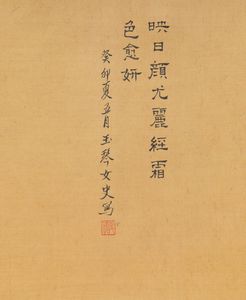 映日顏尤麗經霜
色愈妍
癸卯夏五月玉琴女史寫